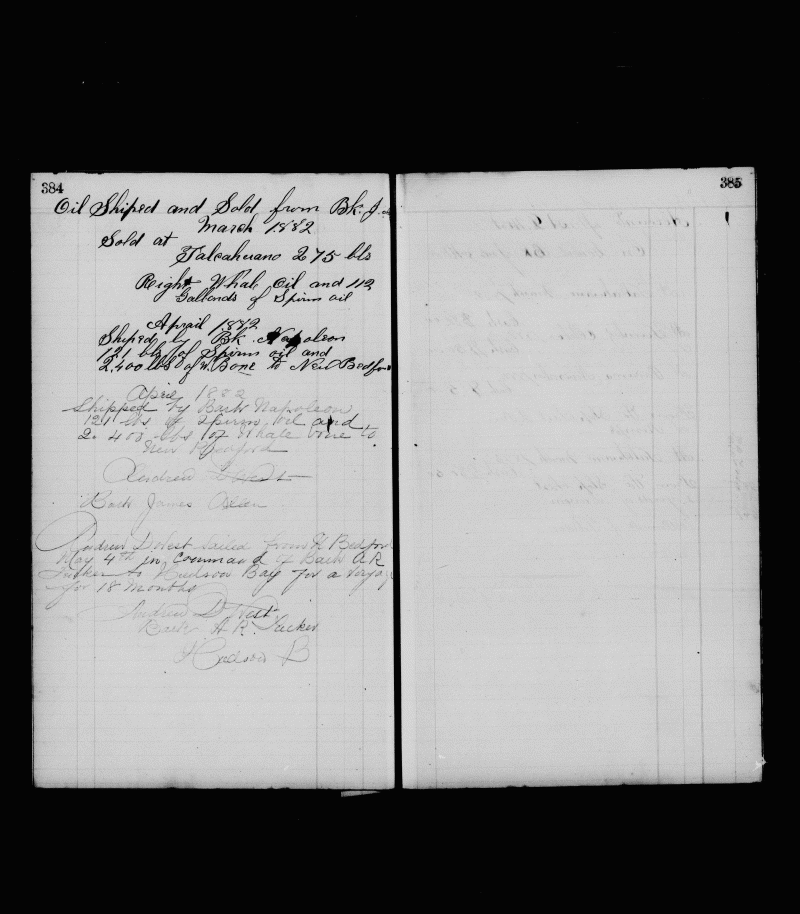 384
Oil Shiped and Sold from Bk. J.
March 1882
Sold at
Talcahuano 275 bls
Reight Whale Oil and 112
Gallonds of Spirm oil
Aprail 1882
Shiped by Bk. Napoleon
121 bls of Spirm oil and
2.400 lbs of W. Bone to New Bedford
April 1882
Shipped by Bark Napoleon
121 bls of Spirm Oil and
2.400 lbs of Whale bone to
New Bedford
Andrew D West
Bark James Allen
Andrew D West sailed from N Bedford
May 4th in Command of Bark A R
Tucker to Hudson Bay for a Voyag
for 18 Months
Andrew D West
Bark A R. Tucker
Hudson B
385